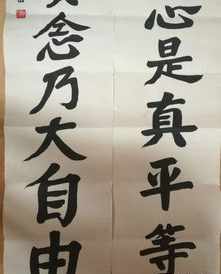 心是真平等
念乃大自由